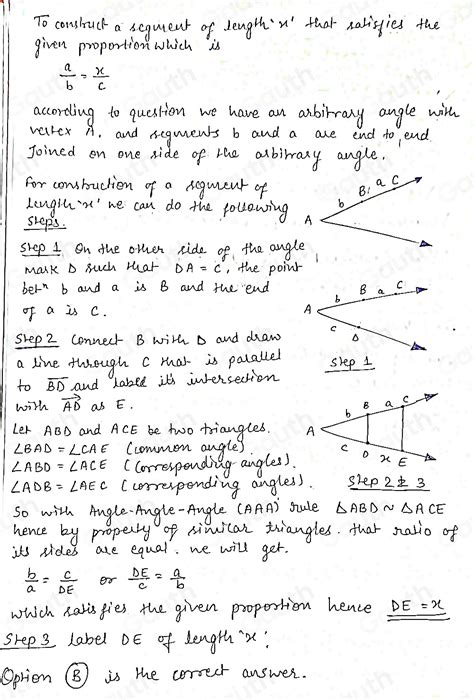 To construct a segment of length 'x' that satisfies the
given proportion which is
a/b = x/c
according to question we have an arbitrary angle with
vertex A. and segments b and a are end to end
Joined on one side of the arbitrary angle.
For construction of a segment of
length 'x' we can do the following
steps.
A b B a C
Step 1 On the other side of the angle
mark D such that DA = c, the point
betⁿ b and a is B and the end
of a is C.
A b B a C
c D
Step 1
Step 2 Connect B with D and draw
a line through C that is parallel
to BD and label its intersection
with AD as E.
A b B a C
c D x E
Step 2 & 3
Let ABD and ACE be two triangles.
∠BAD = ∠CAE (common angle)
∠ABD = ∠ACE (corresponding angles).
∠ADB = ∠AEC (corresponding angles).
So with Angle-Angle-Angle (AAA) rule △ABD ~ △ACE
hence by property of similar triangles. that ratio of
its sides are equal. we will get.
b/a = c/DE or DE/c = a/b
which satisfies the given proportion hence DE = x
Step 3 label DE of length 'x'.
Option (B) is the correct answer.